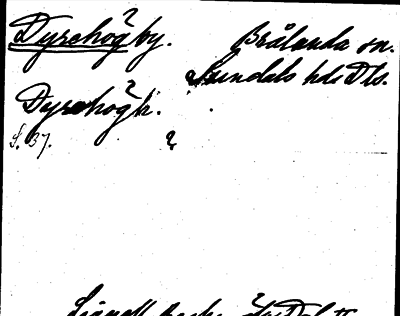 Dyrehög by. Brålanda sn.
Sundals hd Dls.
Dyrehögh.
S. 37. ?